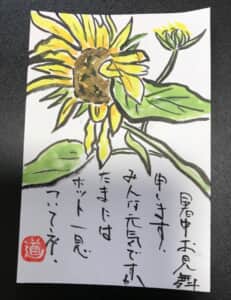 暑中お見舞
申います.
みんな元気ですか
たまには
ホット一息
ついてネ.
道